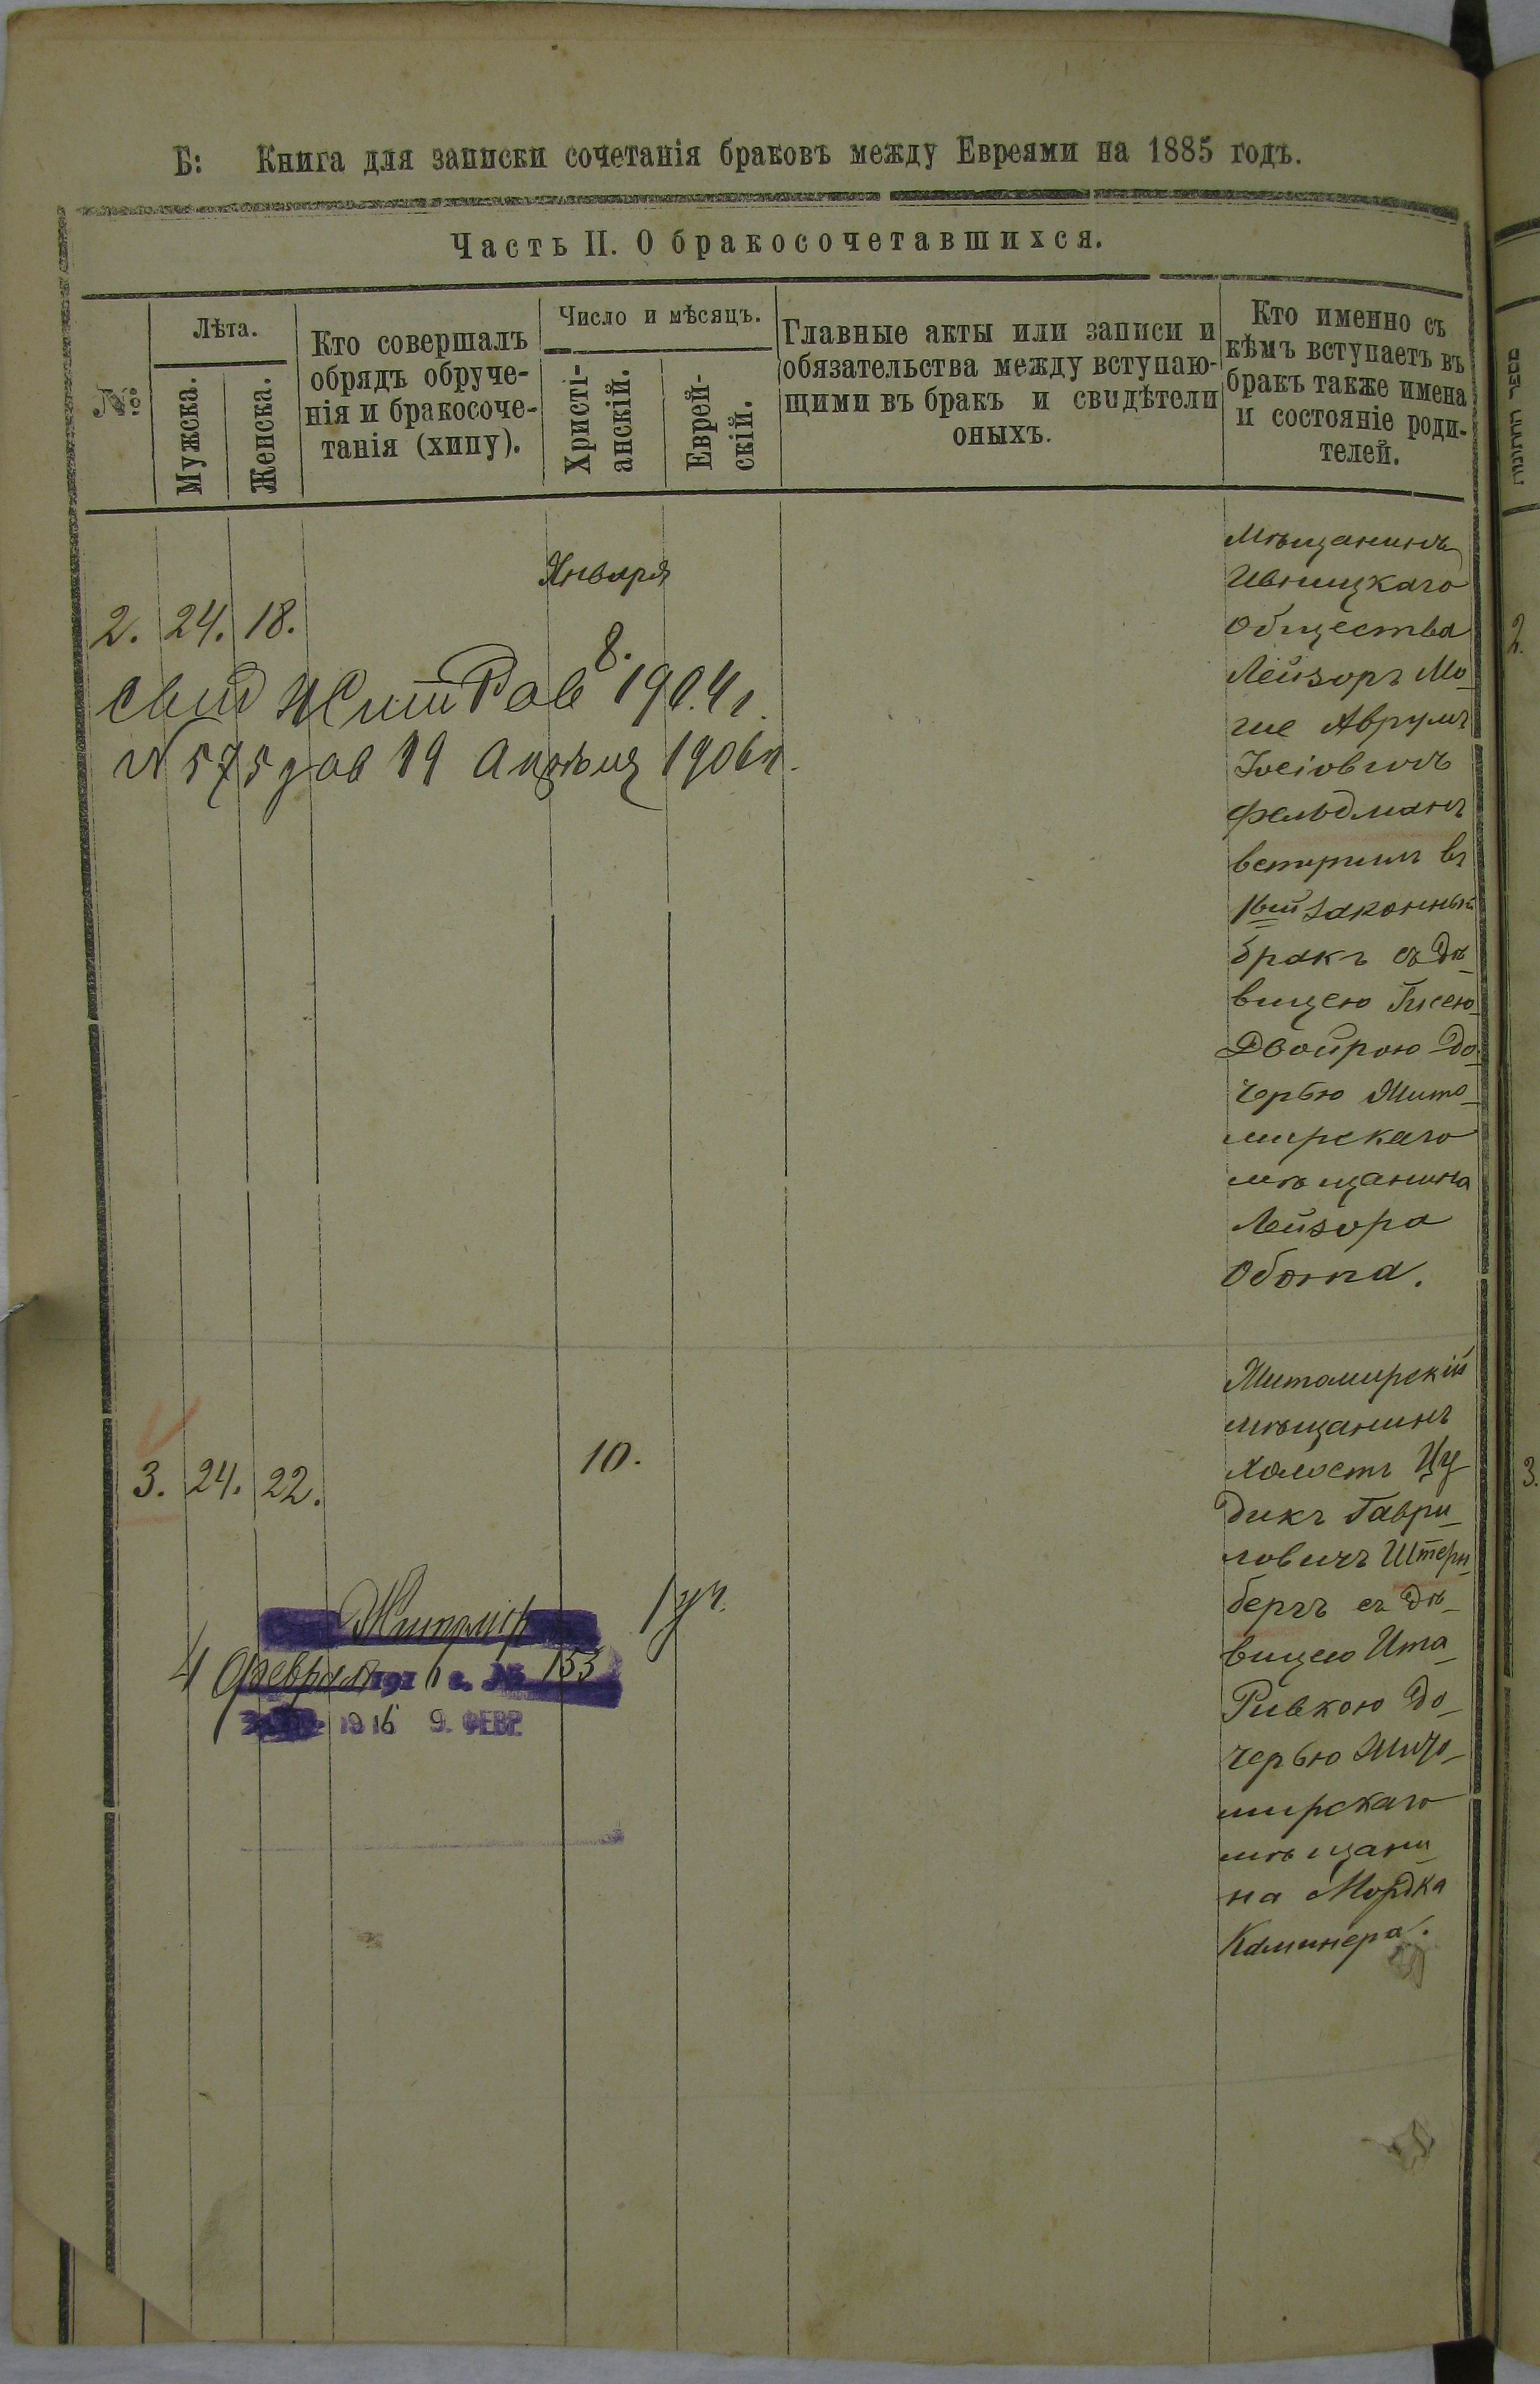 Б: Книга для записки сочетанія браковъ между Евреями на 1885 годъ.
Часть II. О бракосочетавшихся.
№
Лѣта.
Мужска.
Женска.
Кто совершалъ
обрядъ обруче-
нія и бракосоче-
танія (хипу).
Число и мѣсяцъ.
Христі-
анскій.
Еврей-
скій.
Главные акты или записи и
обязательства между вступаю-
щими въ бракъ и свидѣтели
оныхъ.
Кто именно съ
кѣмъ вступаетъ въ
бракъ также имена
и состояніе роди-
телей.
Января
2. 24. 18.
8.
Свид Жит Рав 1904 г.
N 575 дов 19 Апрѣля 1906 г.
Мѣщанинъ
Ивницкаго
Общества
Лейзоръ Мо-
ше Аврумъ
Іосіовичъ
Фельдманъ
вступилъ въ
1вый законный
бракъ съ дѣ-
вицею Гисею-
Двойрою до-
черью Жито-
мирскаго
мѣщанина
Лейзора
Житомирскій
мѣщанинъ
холостъ Цу
дикъ Гаври-
ловичъ Штерн
бергъ съ дѣ-
вицею Ита-
Ривкою до-
черью Жито-
мирскаго
мѣщани
на Мордка
Каминера.
3. 24. 22.
10.
Житомір
4 Февраля 1916 г. № 153
1916 9. ФЕВР.
2.
3.